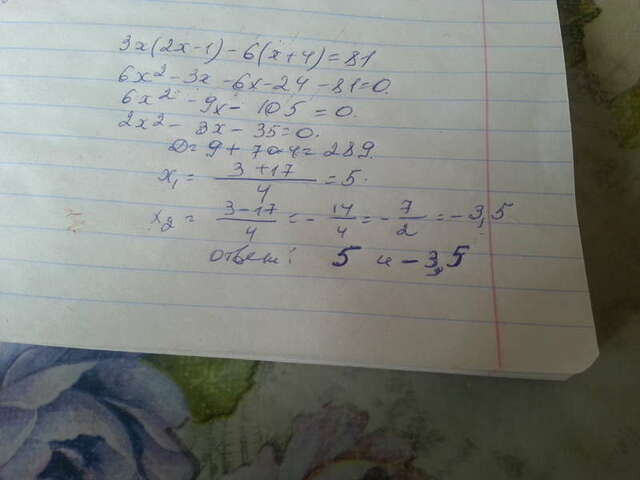 3x(2x-1)-6(x+4)=81
6x²-3x-6x-24-81=0.
6x²-9x-105=0.
2x²-3x-35=0.
D=9+70·4=289.
x₁ = (3+17)/4 = 5.
x₂ = (3-17)/4 = -14/4 = -7/2 = -3,5
ответ: 5 и -3,5